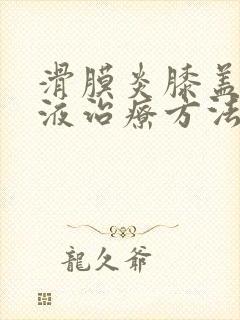 滑膜炎膝盖
液治疗方法
龍久爺